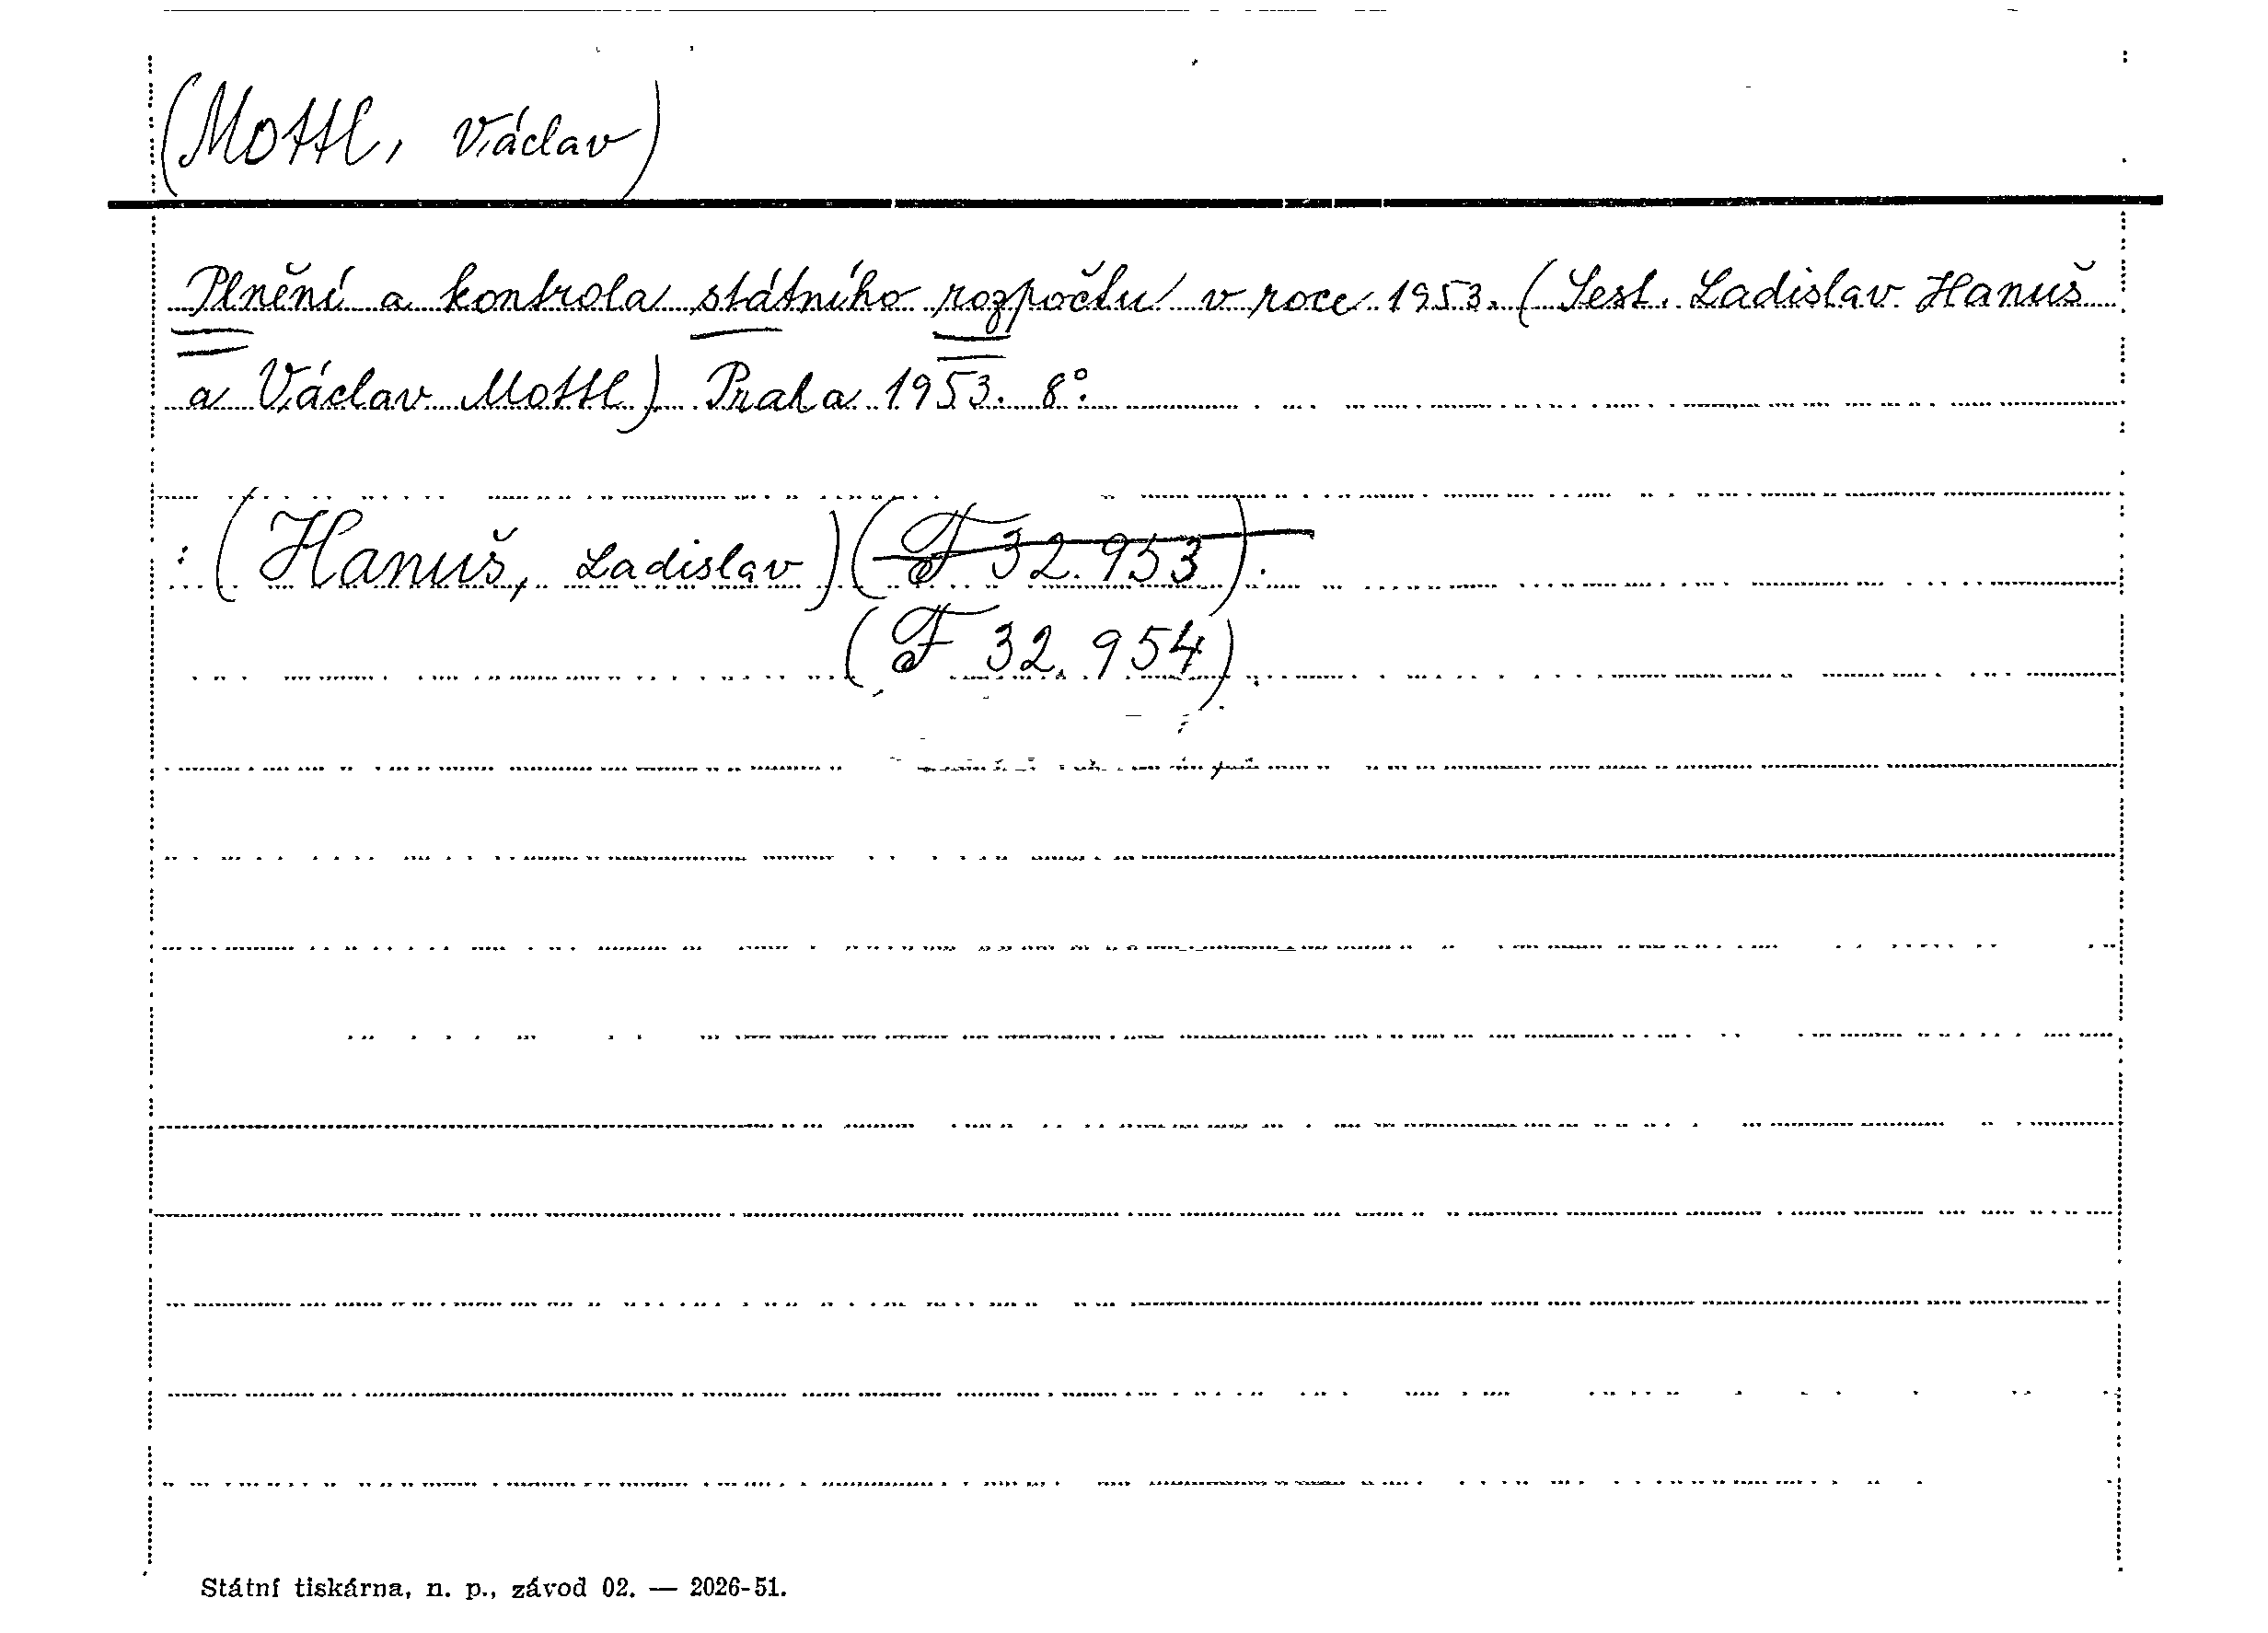 (Mottl, Václav)
Plnění a kontrola státního rozpočtu v roce 1953. (Sest. Ladislav Hanuš
a Václav Mottl) Praha 1953. 8°.
: (Hanuš, Ladislav) (F 32.953).
(F 32.954).
Státní tiskárna, n. p., závod 02. — 2026-51.